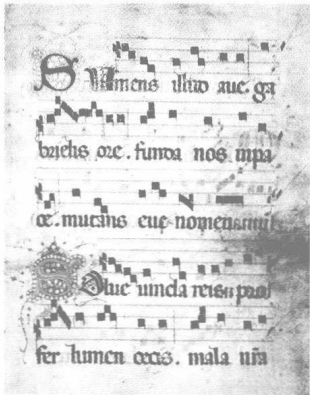 SUmens illud aue. ga
brielis ore. funda nos inpa
ce. mutans eue nomen
Solue uincla reis
fer lumen cecis. mala nr̃a